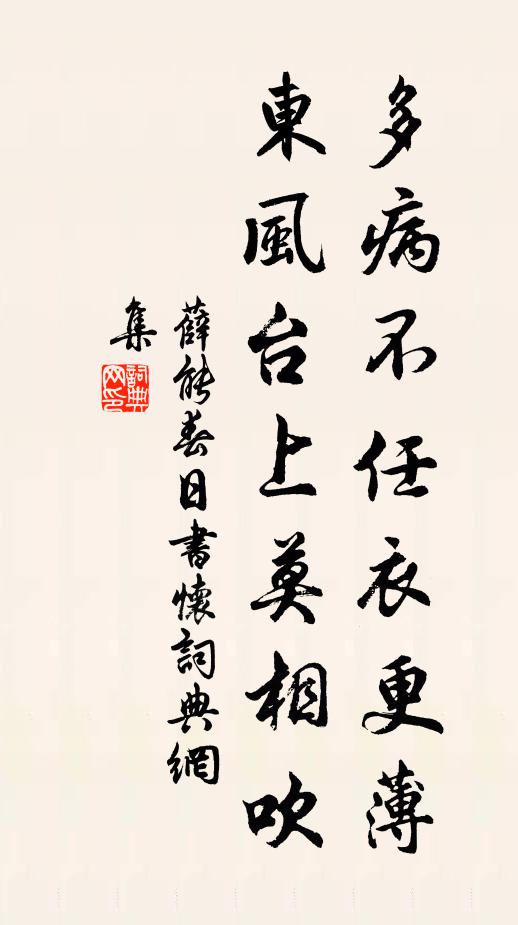 多病不任衣更薄
東風台上莫相吹
薛能春日書懷詞典網
集
詞典網印